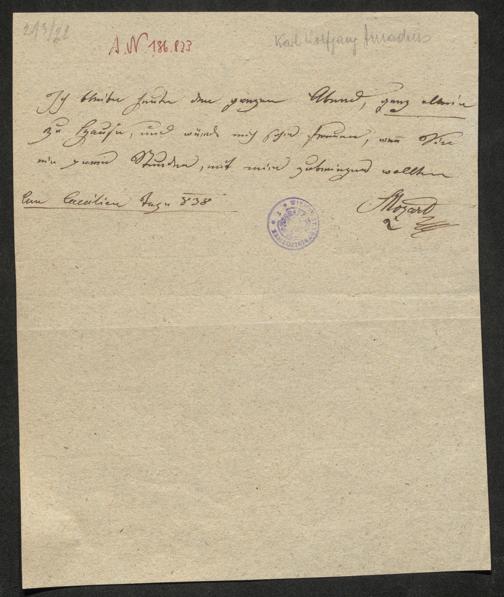 213/21
A N 186.823
Karl Wolfgang Amadeus
Ich bleibe heute den ganzen Abend, ganz allein
zu Hause, und würde mich sehr freuen, wenn Sie
ein paar Stunden, mit mir zubringen wollten
Am Caecilien Tage 838
Mozart